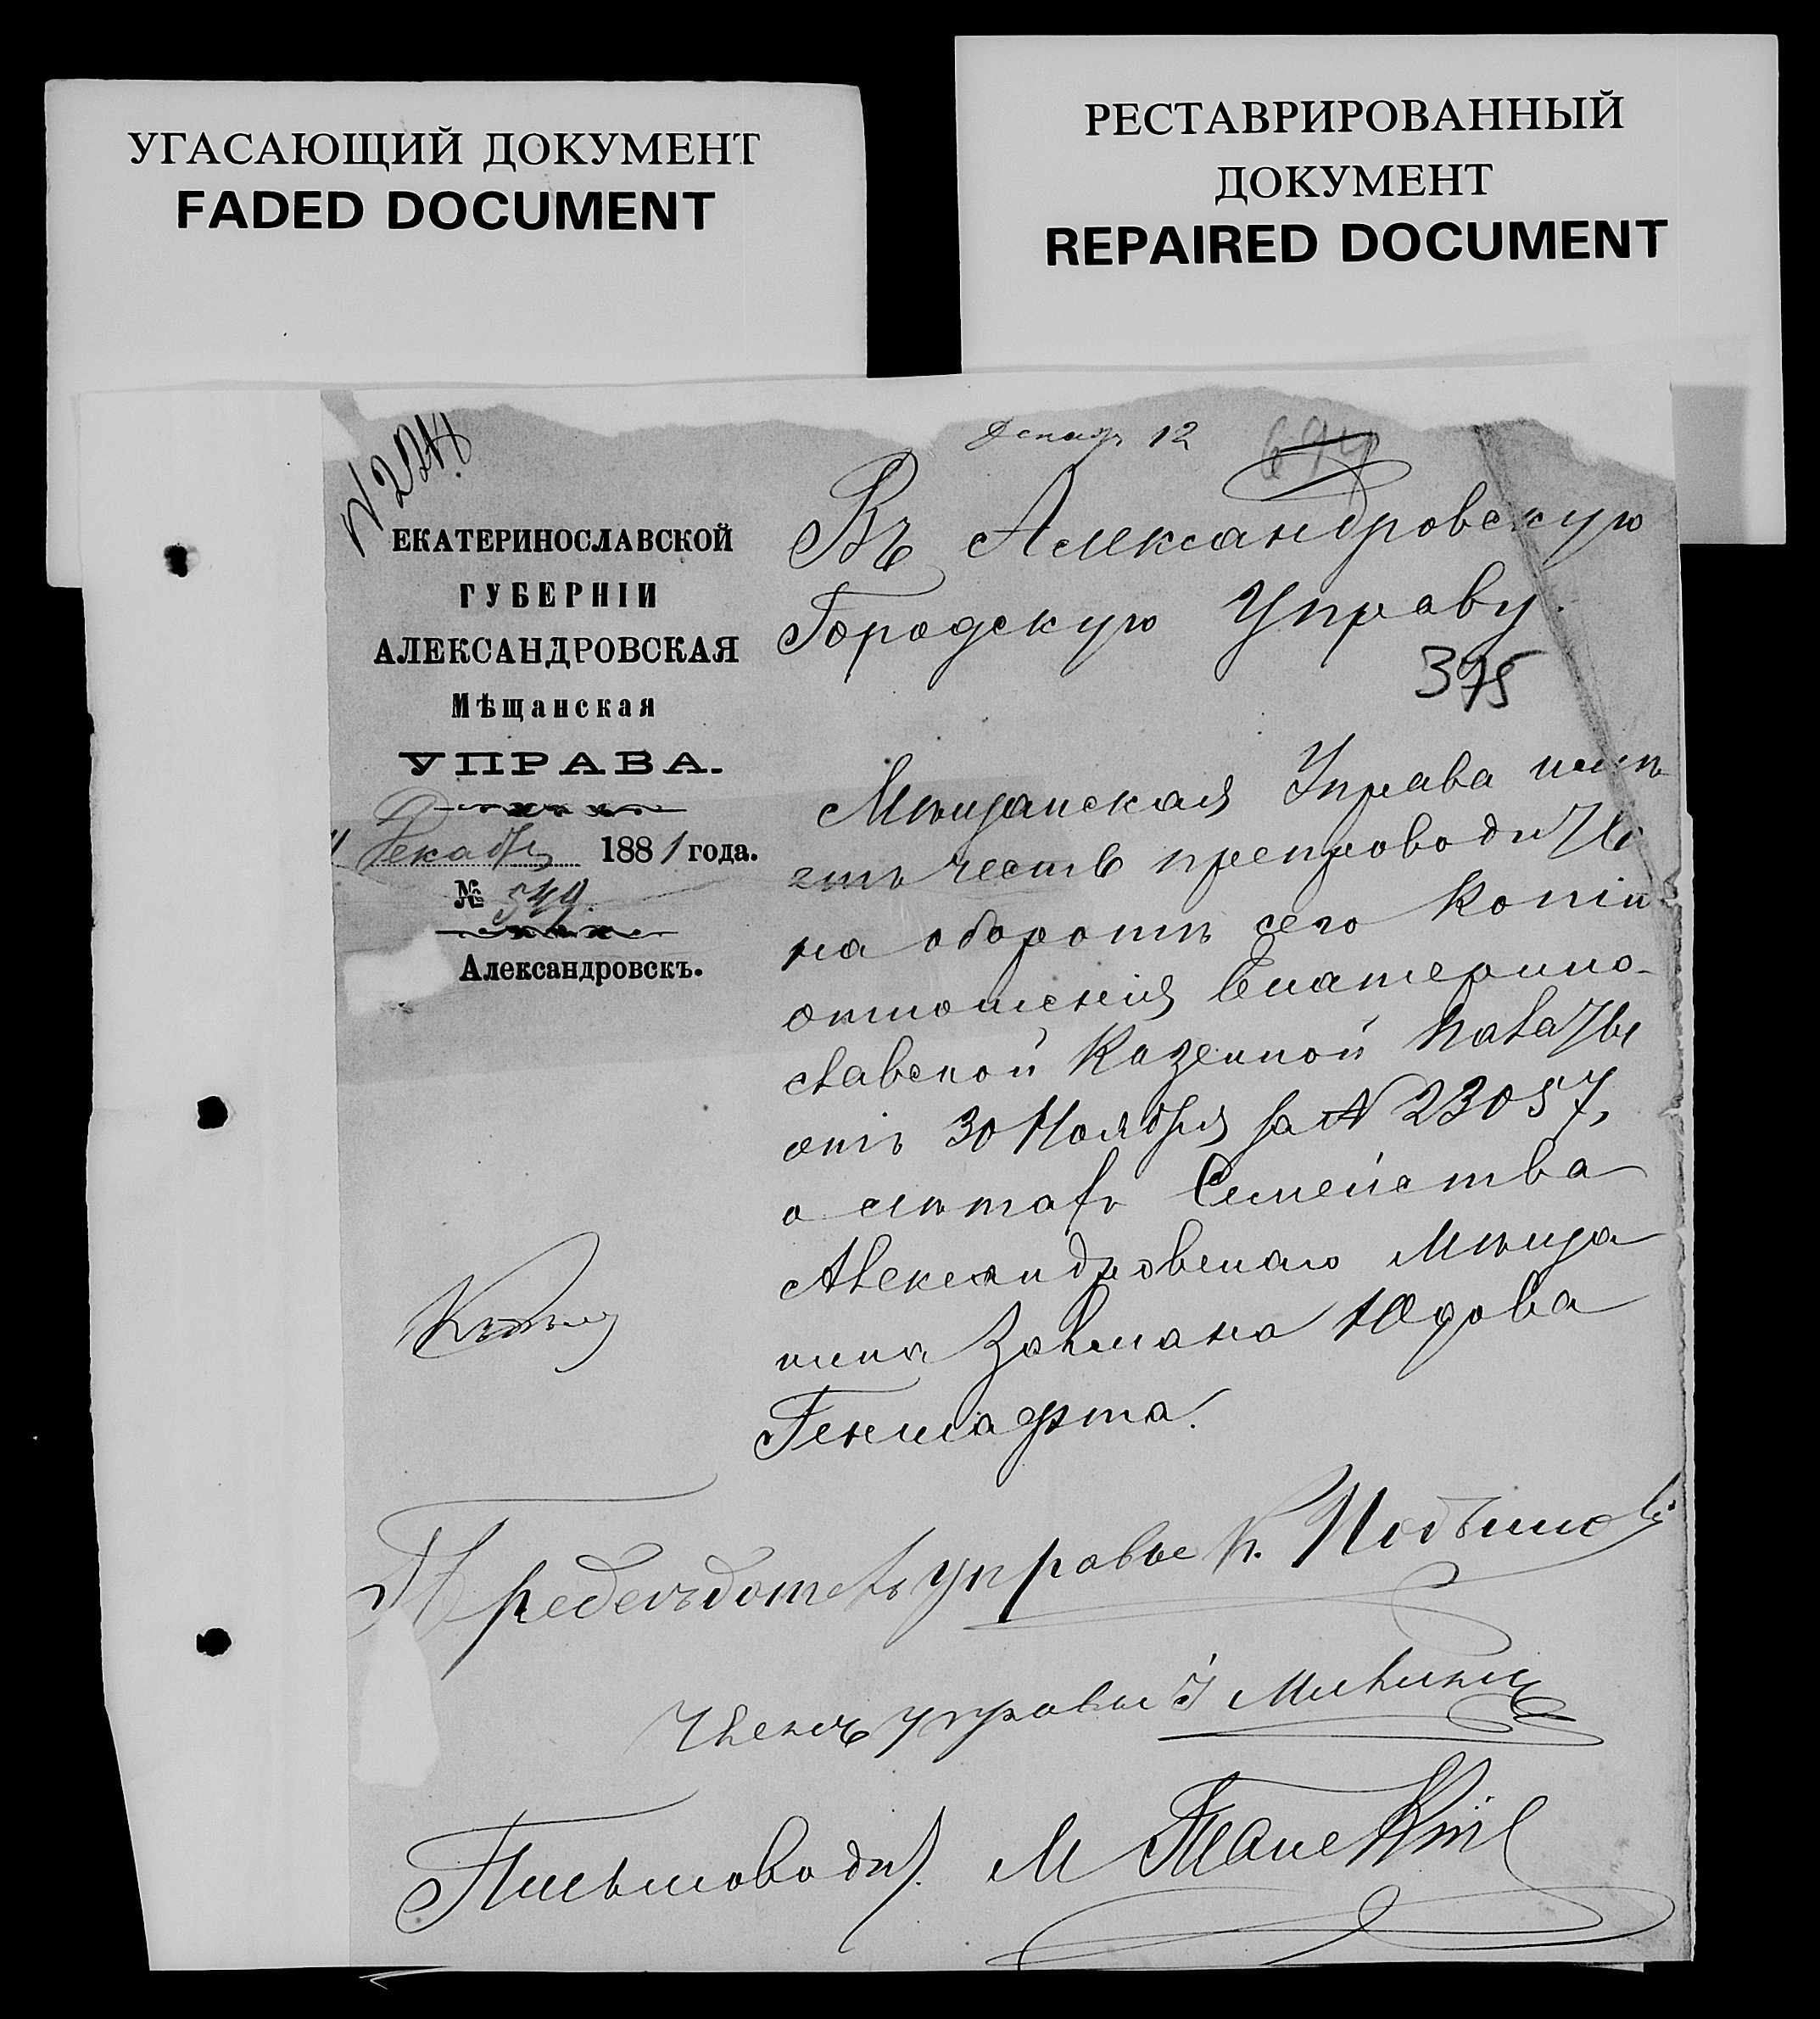 УГАСАЮЩИЙ ДОКУМЕНТ
FADED DOCUMENT
РЕСТАВРИРОВАННЫЙ
ДОКУМЕНТ
REPAIRED DOCUMENT
12
ЕКАТЕРИНОСЛАВСКОЙ
ГУБЕРНІИ
АЛЕКСАНДРОВСКАЯ
Мѣщанская
УПРАВА.
Декабря 1881 года.
№ 549.
Александровскъ.
Въ Александровскую
Городскую Управу.
375
Мѣщанская Управа имѣ
етъ честь препроводить
на оборотѣ сего копію
отношенія Екатерино-
славской Казенной Палаты
отъ 30 Ноября за № 23057,
о Семейства
Александровскаго Мѣща
нина Залмана Юдова
Геншафта.
Предсѣдатель управы К.
Членъ управы
Письмовод. М